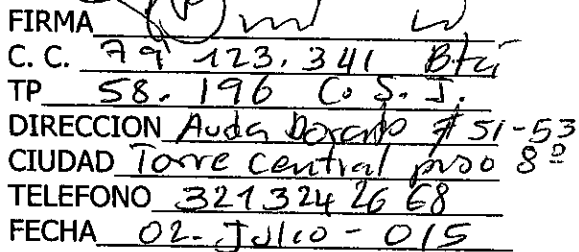 FIRMA
C. C. 79 123.341 Btá
TP 58.196 C. S. J.
DIRECCION Avda Dorado # 51-53
CIUDAD Torre Central piso 8º
TELEFONO 321 324 26 68
FECHA 02- Julio - 015